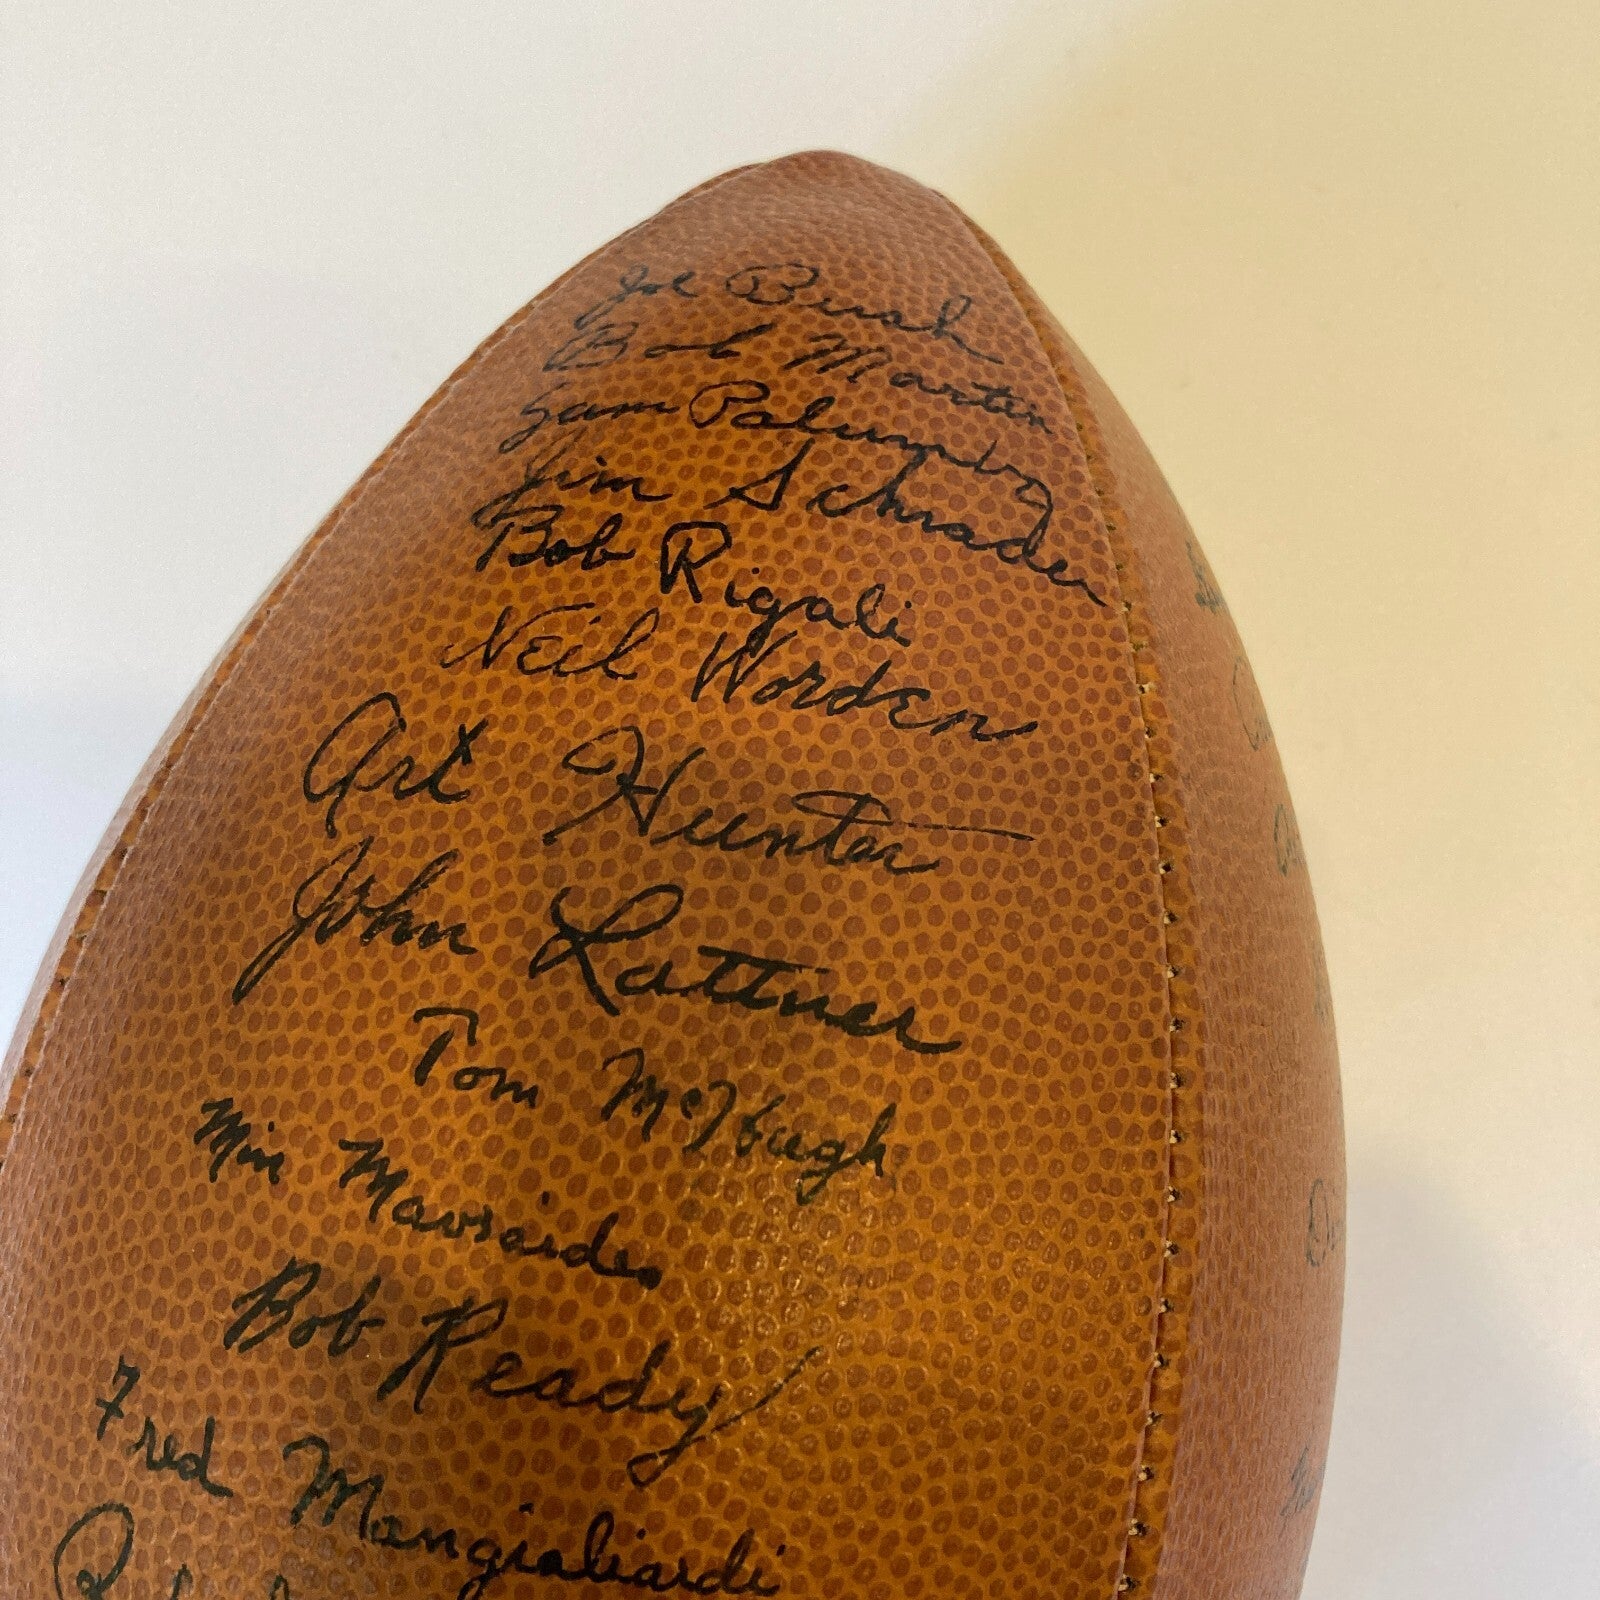 Joe Bush
Bob Martin
Sam Palumbo
Jim Schrader
Bob Rigali
Neil Worden
Art Hunter
John Lattner
Tom McHugh
Min Mavraides
Bob Ready
Fred Mangialiardi